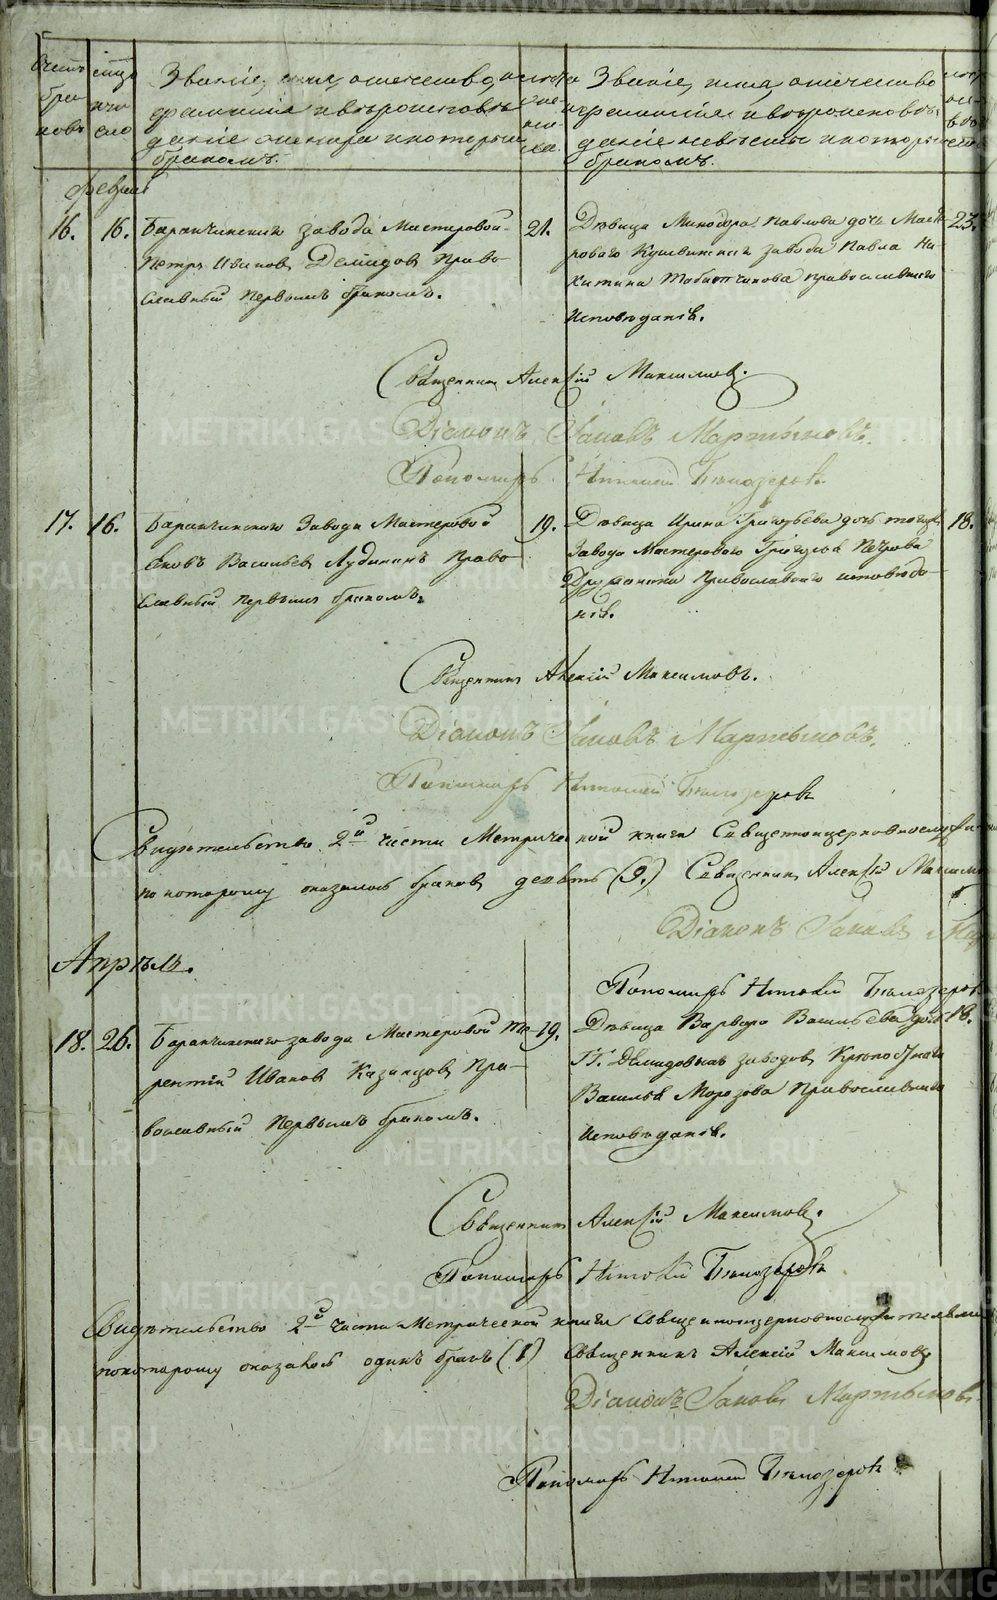 Счетъ браковъ
мѣсяцъ и число
Званіе, имя, отечество,
фамилія и вѣроисповѣ-
даніе жениха и которымъ
бракомъ.
лета жениха.
Званіе, имя, отечество
фамилія и вѣроисповѣ-
даніе невѣсты и которымъ
бракомъ.
Февраль
16. 16. Баранчинскаго завода Мастеровой
Петръ Ивановъ Демидовъ Право-
славный первымъ бракомъ.
21.
Дѣвица Минодора Павлова дочь Масте-
роваго Кушвинскаго завода Павла Ни-
китина православнаго
исповѣданія.
23.
Священникъ Алексій Максимовъ.
Діаконъ Іаковъ Мартыновъ.
Пономарь Бѣлозеровъ
17. 16. Баранчинскаго Завода Мастеровой
Яковъ Васильевъ Право-
славный первымъ бракомъ.
19.
Дѣвица Ирина Григорьева дочь тогожъ
Завода Мастероваго Григорья Петрова
православнаго исповѣда-
нія.
18.
Священникъ Алексій Максимовъ.
Діаконъ Іаковъ Мартыновъ.
Пономарь Бѣлозеровъ
Свидѣтельство 2й части Метрической книги Священноцерковнослужи
по которому оказалось браковъ девять (9.) Священникъ Алексій Максимо
Діаконъ Іаковъ Мар
Апрѣль.
Пономарь Бѣлозеров
18. 26. Баранчинскаго завода Мастеровой Те-
рентій Ивановъ Казанцовъ Пра-
вославный первымъ бракомъ.
19.
Дѣвица Варвара Васильева дочь
Гг. Демидовыхъ заводовъ Крѣпостнаго
Василья Морозова Православнаго
исповѣданія.
18.
Священникъ Алексій Максимовъ.
Пономарь Бѣлозеровъ
Свидѣтельство 2й части Метрической книги Священноцерковнослужителями
по которому оказался одинъ бракъ (1) Священникъ Алексій Максимовъ
Діаконъ Іаковъ Мартыновъ.
Пономарь Бѣлозеровъ
METRIKI.GASO-URAL.RU